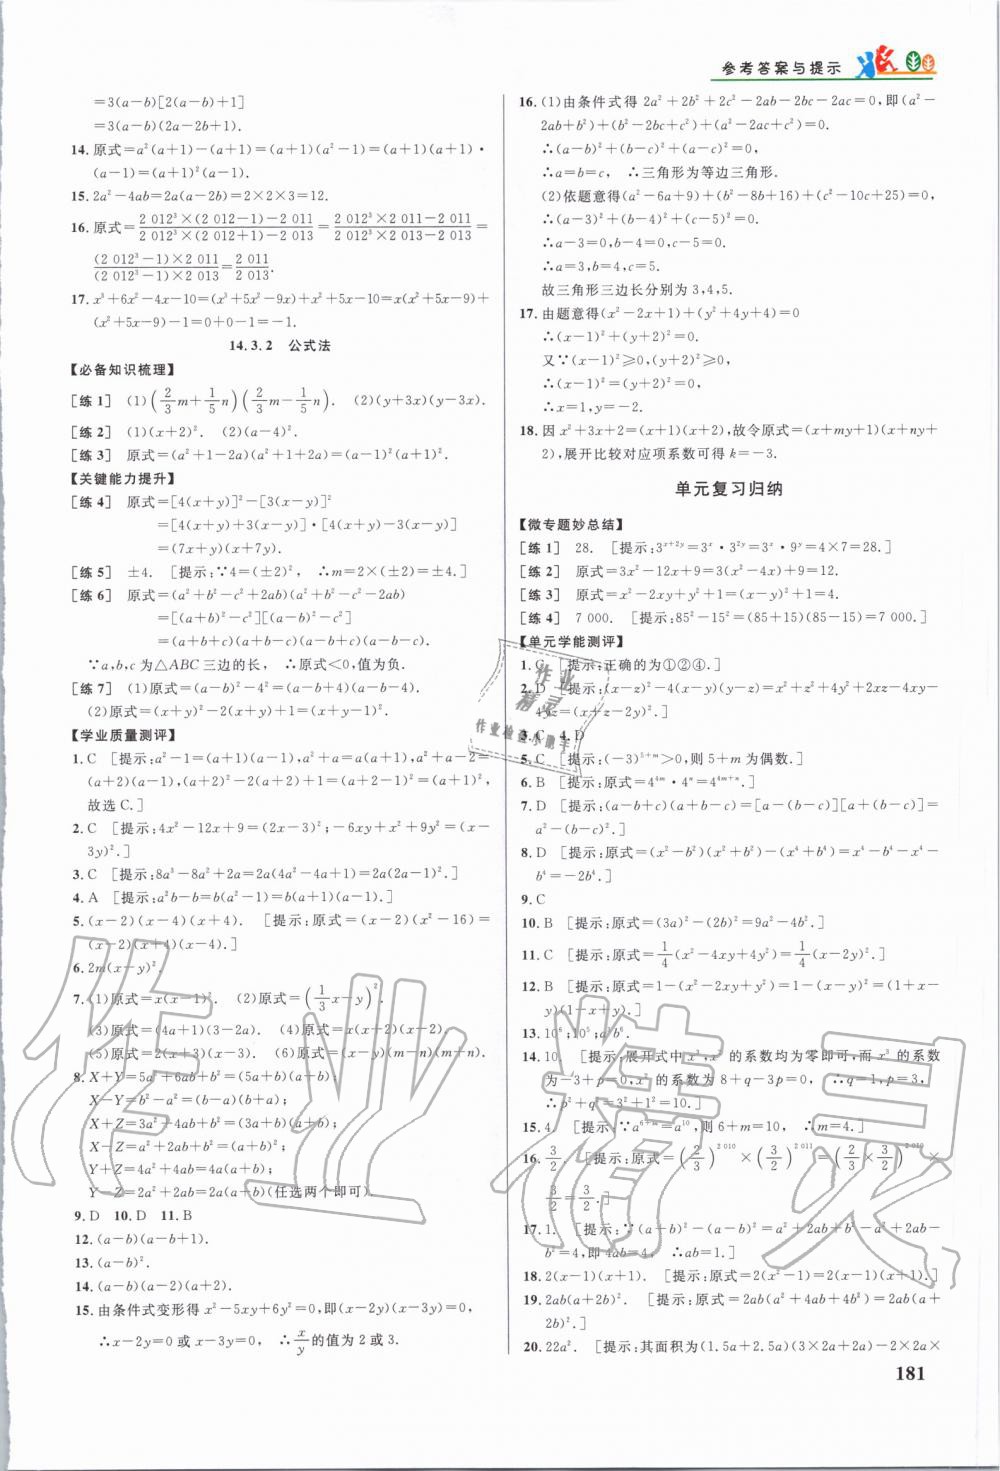 参考答案与提示
=3(a-b)[2(a-b)+1]
=3(a-b)(2a-2b+1).
14.原式=a²(a+1)-(a+1)=(a+1)(a²-1)=(a+1)(a+1)·
(a-1)=(a+1)²(a-1).
15.2a²-4ab=2a(a-2b)=2×2×3=12.
16.原式=(2 012³×(2 012-1)-2 011)/(2 012³×(2 012+1)-2 013)=(2 012³×2 011-2 011)/(2 012³×2 013-2 013)=
((2 012³-1)×2 011)/((2 012³-1)×2 013)=2 011/2 013.
17.x³+6x²-4x-10=(x³+5x²-9x)+x²+5x-10=x(x²+5x-9)+
(x²+5x-9)-1=0+0-1=-1.
14.3.2 公式法
【必备知识梳理】
[练1] (1)(2/3m+1/5n)(2/3m-1/5n). (2)(y+3x)(y-3x).
[练2] (1)(x+2)². (2)(a-4)².
[练3] 原式=(a²+1-2a)(a²+1+2a)=(a-1)²(a+1)².
【关键能力提升】
[练4] 原式=[4(x+y)]²-[3(x-y)]²
=[4(x+y)+3(x-y)]·[4(x+y)-3(x-y)]
=(7x+y)(x+7y).
[练5] ±4. [提示:∵4=(±2)², ∴m=2×(±2)=±4.]
[练6] 原式=(a²+b²-c²+2ab)(a²+b²-c²-2ab)
=[(a+b)²-c²][(a-b)²-c²]
=(a+b+c)(a+b-c)(a-b+c)(a-b-c).
∵a,b,c为△ABC三边的长, ∴原式<0,值为负.
[练7] (1)原式=(a-b)²-4²=(a-b+4)(a-b-4).
(2)原式=(x+y)²-2(x+y)+1=(x+y-1)².
【学业质量测评】
1.C [提示:a²-1=(a+1)(a-1),a²+a=a(a+1),a²+a-2=
(a+2)(a-1),(a+2)²-2(a+2)+1=(a+2-1)²=(a+1)²,
故选C.]
2.C [提示:4x²-12x+9=(2x-3)²;-6xy+x²+9y²=(x-
3y)².]
3.C [提示:8a³-8a²+2a=2a(4a²-4a+1)=2a(2a-1)².]
4.A [提示:a²b-b=b(a²-1)=b(a+1)(a-1).]
5.(x-2)(x-4)(x+4). [提示:原式=(x-2)(x²-16)=
(x-2)(x+4)(x-4).]
6.2m(x-y)².
7.(1)原式=x(x-1)². (2)原式=(1/3x-y)².
(3)原式=(4a+1)(3-2a). (4)原式=x(x+2)(x-2).
(5)原式=2(x+3)(x-3). (6)原式=(x-y)(m-n)(m+n).
8.X+Y=5a²+6ab+b²=(5a+b)(a+b);
X-Y=b²-a²=(b-a)(b+a);
X+Z=3a²+4ab+b²=(3a+b)(a+b);
X-Z=a²+2ab+b²=(a+b)²;
Y+Z=4a²+4ab=4a(a+b);
Y-Z=2a²+2ab=2a(a+b)(任选两个即可).
9.D 10.D 11.B
12.(a-b)(a-b+1).
13.(a-b)².
14.(a-b)(a-2)(a+2).
15.由条件式变形得x²-5xy+6y²=0,即(x-2y)(x-3y)=0,
∴x-2y=0或x-3y=0, ∴x/y的值为2或3.
16.(1)由条件式得2a²+2b²+2c²-2ab-2bc-2ac=0,即(a²-
2ab+b²)+(b²-2bc+c²)+(a²-2ac+c²)=0.
∴(a-b)²+(b-c)²+(a-c)²=0,
∴a=b=c, ∴三角形为等边三角形.
(2)依题意得(a²-6a+9)+(b²-8b+16)+(c²-10c+25)=0,
∴(a-3)²+(b-4)²+(c-5)²=0.
∴a-3=0,b-4=0,c-5=0.
∴a=3,b=4,c=5.
故三角形三边长分别为3,4,5.
17.由题意得(x²-2x+1)+(y²+4y+4)=0
∴(x-1)²+(y+2)²=0.
又∵(x-1)²≥0,(y+2)²≥0,
∴(x-1)²=0,(y+2)²=0.
∴x=1,y=-2.
18.因x²+3x+2=(x+1)(x+2),故令原式=(x+my+1)(x+ny+
2),展开比较对应项系数可得k=-3.
单元复习归纳
【微专题妙总结】
[练1] 28. [提示:3ˣ⁺²ʸ=3ˣ·3²ʸ=3ˣ·9ʸ=4×7=28.]
[练2] 原式=3x²-12x+9=3(x²-4x)+9=12.
[练3] 原式=x²-2xy+y²+1=(x-y)²+1=4.
[练4] 7 000. [提示:85²-15²=(85+15)(85-15)=7 000.]
【单元学能测评】
1.C [提示:正确的为①②④.]
2.D [提示:(x-z)²-4(x-y)(y-z)=x²+z²+4y²+2xz-4xy-
4yz=(x+z-2y)².]
3.C 4.D
5.C [提示:(-3)⁵⁺ᵐ>0,则5+m为偶数.]
6.B [提示:原式=4⁴ᵐ·4ⁿ=4⁴ᵐ⁺ⁿ.]
7.D [提示:(a-b+c)(a+b-c)=[a-(b-c)][a+(b-c)]=
a²-(b-c)².]
8.D [提示:原式=(x²-b²)(x²+b²)-(x⁴+b⁴)=x⁴-b⁴-x⁴-
b⁴=-2b⁴.]
9.C
10.B [提示:原式=(3a)²-(2b)²=9a²-4b².]
11.C [提示:原式=1/4(x²-4xy+4y²)=1/4(x-2y)².]
12.B [提示:原式=1-(x²-2xy+y²)=1-(x-y)²=(1+x-
y)(1-x+y).]
13.10⁶;10⁵;a³b⁶.
14.10. [提示:展开式中x²,x³的系数均为零即可,而x³的系数
为-3+p=0,x²的系数为8+q-3p=0, ∴q=1,p=3,
∴p²+q=3²+1²=10.]
15.4. [提示:∵a⁶⁺ᵐ=a¹⁰,则6+m=10, ∴m=4.]
16.3/2. [提示:原式=(2/3)²⁰¹⁰×(3/2)²⁰¹¹=(2/3×3/2)²⁰¹⁰×
3/2=3/2.]
17.1. [提示:∵(a+b)²-(a-b)²=a²+2ab+b²-a²+2ab-
b²=4,即4ab=4, ∴ab=1.]
18.2(x-1)(x+1). [提示:原式=2(x²-1)=2(x-1)(x+1).]
19.2ab(a+2b)². [提示:原式=2ab(a²+4ab+4b²)=2ab(a+
2b)².]
20.22a². [提示:其面积为(1.5a+2.5a)(3×2a+2a)-2×2a×
181
作业
精灵
作业检查小助手
作业精灵